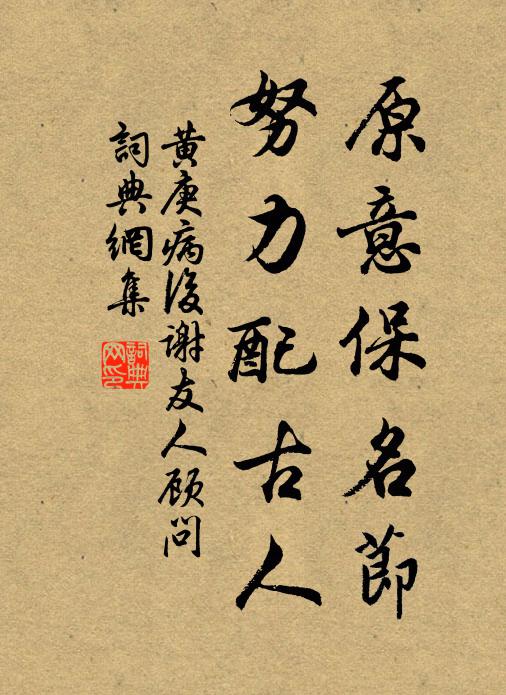 原意保名節
努力配古人
黄庚病後謝友人顧問
詞典網集
詞典網印